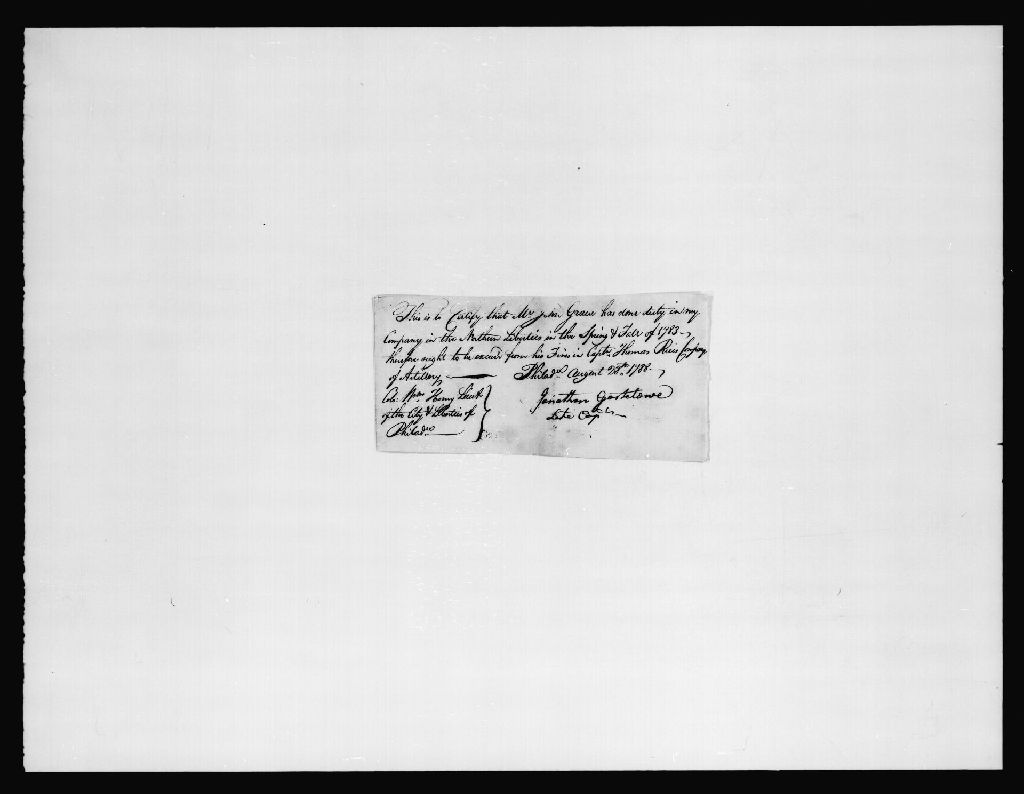 This is to Certify that Mr. John Graeve has done duty in my
Company in the Northern Liberties in the Spring & Fall of 1783 -
therefore ought to be excused from his Fines in Captn. Thomas Rices Company
of Artillery
Philada. August 28th. 1788
Colo. Wm. Henry Lieut
of the City & Liberties of
Philada.
Jonathan
Late Captn